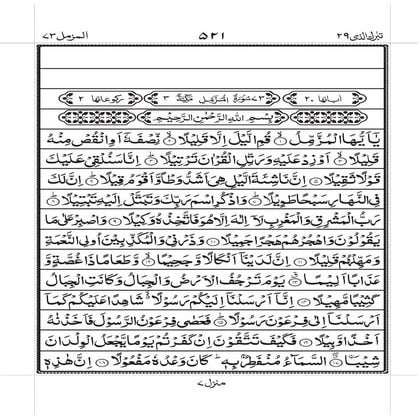 تبٰرك الذی ۲۹ ۵۲۱ المزمل ۷۳
اٰیاتها ۲۰ ۷۳ سُوْرَةُ الْمُزَّمِّلِ مَكِّیَّةٌ ۳ ركوعاتها ۲
بِسْمِ اللّٰهِ الرَّحْمٰنِ الرَّحِیْمِ
یٰۤاَیُّهَا الْمُزَّمِّلُ ۙ۝ قُمِ الَّیْلَ اِلَّا قَلِیْلًا ۙ۝ نِّصْفَهٗۤ اَوِ انْقُصْ مِنْهُ
قَلِیْلًا ۙ۝ اَوْ زِدْ عَلَیْهِ وَرَتِّلِ الْقُرْاٰنَ تَرْتِیْلًا ؕ۝ اِنَّا سَنُلْقِیْ عَلَیْكَ
قَوْلًا ثَقِیْلًا ۝ اِنَّ نَاشِئَةَ الَّیْلِ هِیَ اَشَدُّ وَطْاً وَّاَقْوَمُ قِیْلًا ؕ۝ اِنَّ لَكَ
فِی النَّهَارِ سَبْحًا طَوِیْلًا ؕ۝ وَاذْكُرِ اسْمَ رَبِّكَ وَتَبَتَّلْ اِلَیْهِ تَبْتِیْلًا ؕ۝
رَبُّ الْمَشْرِقِ وَالْمَغْرِبِ لَاۤ اِلٰهَ اِلَّا هُوَ فَاتَّخِذْهُ وَكِیْلًا ۝ وَاصْبِرْ عَلٰی مَا
یَقُوْلُوْنَ وَاهْجُرْهُمْ هَجْرًا جَمِیْلًا ۝ وَذَرْنِیْ وَالْمُكَذِّبِیْنَ اُولِی النَّعْمَةِ
وَمَهِّلْهُمْ قَلِیْلًا ۝ اِنَّ لَدَیْنَاۤ اَنْكَالًا وَّجَحِیْمًا ۙ۝ وَّطَعَامًا ذَا غُصَّةٍ وَّ
عَذَابًا اَلِیْمًا ۝ یَوْمَ تَرْجُفُ الْاَرْضُ وَالْجِبَالُ وَكَانَتِ الْجِبَالُ
كَثِیْبًا مَّهِیْلًا ۝ اِنَّاۤ اَرْسَلْنَاۤ اِلَیْكُمْ رَسُوْلًا ۙ۬ شَاهِدًا عَلَیْكُمْ كَمَاۤ
اَرْسَلْنَاۤ اِلٰی فِرْعَوْنَ رَسُوْلًا ؕ۝ فَعَصٰی فِرْعَوْنُ الرَّسُوْلَ فَاَخَذْنٰهُ
اَخْذًا وَّبِیْلًا ۝ فَكَیْفَ تَتَّقُوْنَ اِنْ كَفَرْتُمْ یَوْمًا یَّجْعَلُ الْوِلْدَانَ
شِیْبَا ۖۗ۝ اِۨلسَّمَآءُ مُنْفَطِرٌۢ بِهٖ ؕ كَانَ وَعْدُهٗ مَفْعُوْلًا ۝ اِنَّ هٰذِهٖ
منزل ۷